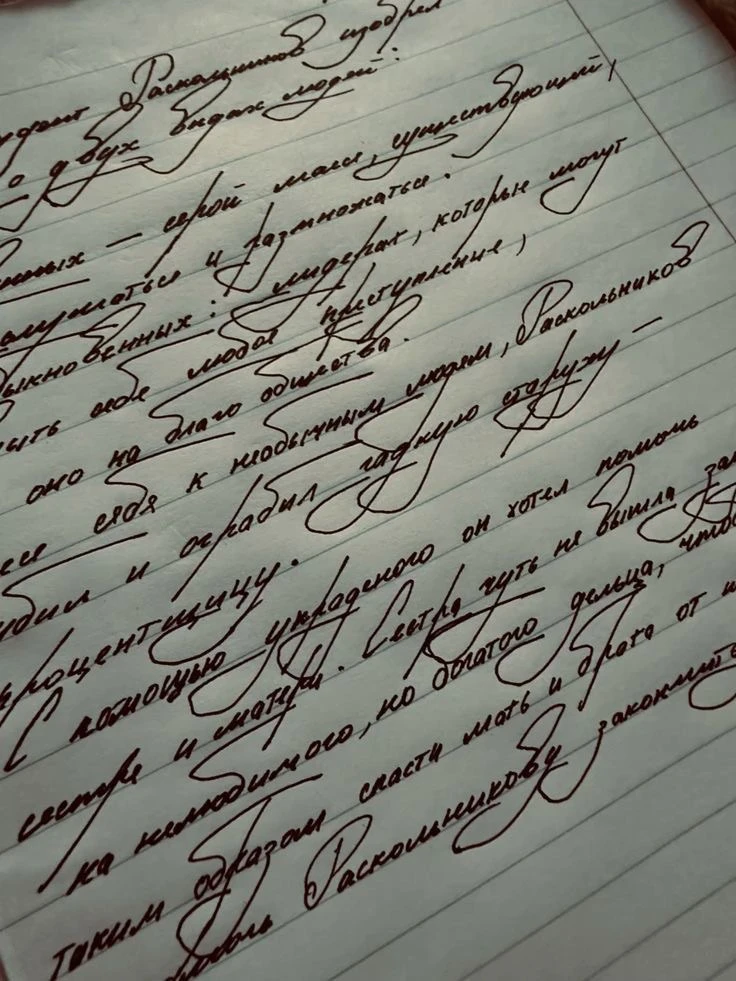 Раскольников изобрел
о двух видах людей:
— серой массе, существующей,
и размножаться.
: лидерах, которые могут
себе любое преступление,
оно на благо общества.
себя к необычным людям, Раскольников
и ограбил гадкую старуху —
процентщицу.
С помощью украденного он хотел помочь
сестре и матери. Сестра чуть не вышла
на нелюбимого, но богатого дельца,
таким образом спасти мать и брата от
Раскольникову закончить